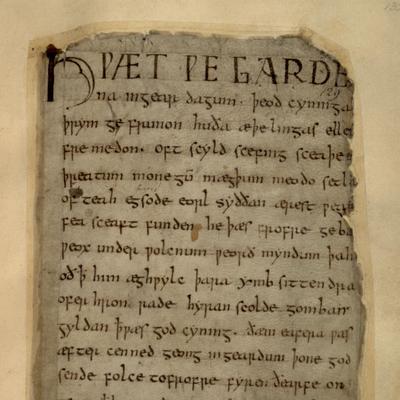 HǷÆT ǷE GARDE
na ingear dagum. þeod cyninga
þrym ge frunon huða æþelingas elle
fremedon. oft scyld scefing sceaþe
þreatum monegū mægþum meodo setla
of teah egsode eorl syððan ærest ƿear
fea sceaft funden he þæs frofre geba
ƿeox under ƿolcnum ƿeorð myndum þah
oð ꝥ him æghƿylc þara ymb sittendra
ofer hron rade hyran scolde gomban
gyldan ꝥ ƿæs god cyning. ðæm eafera ƿæs
æfter cenned geong ingeardum þone god
sende folce tofrofre fyren ðearfe on